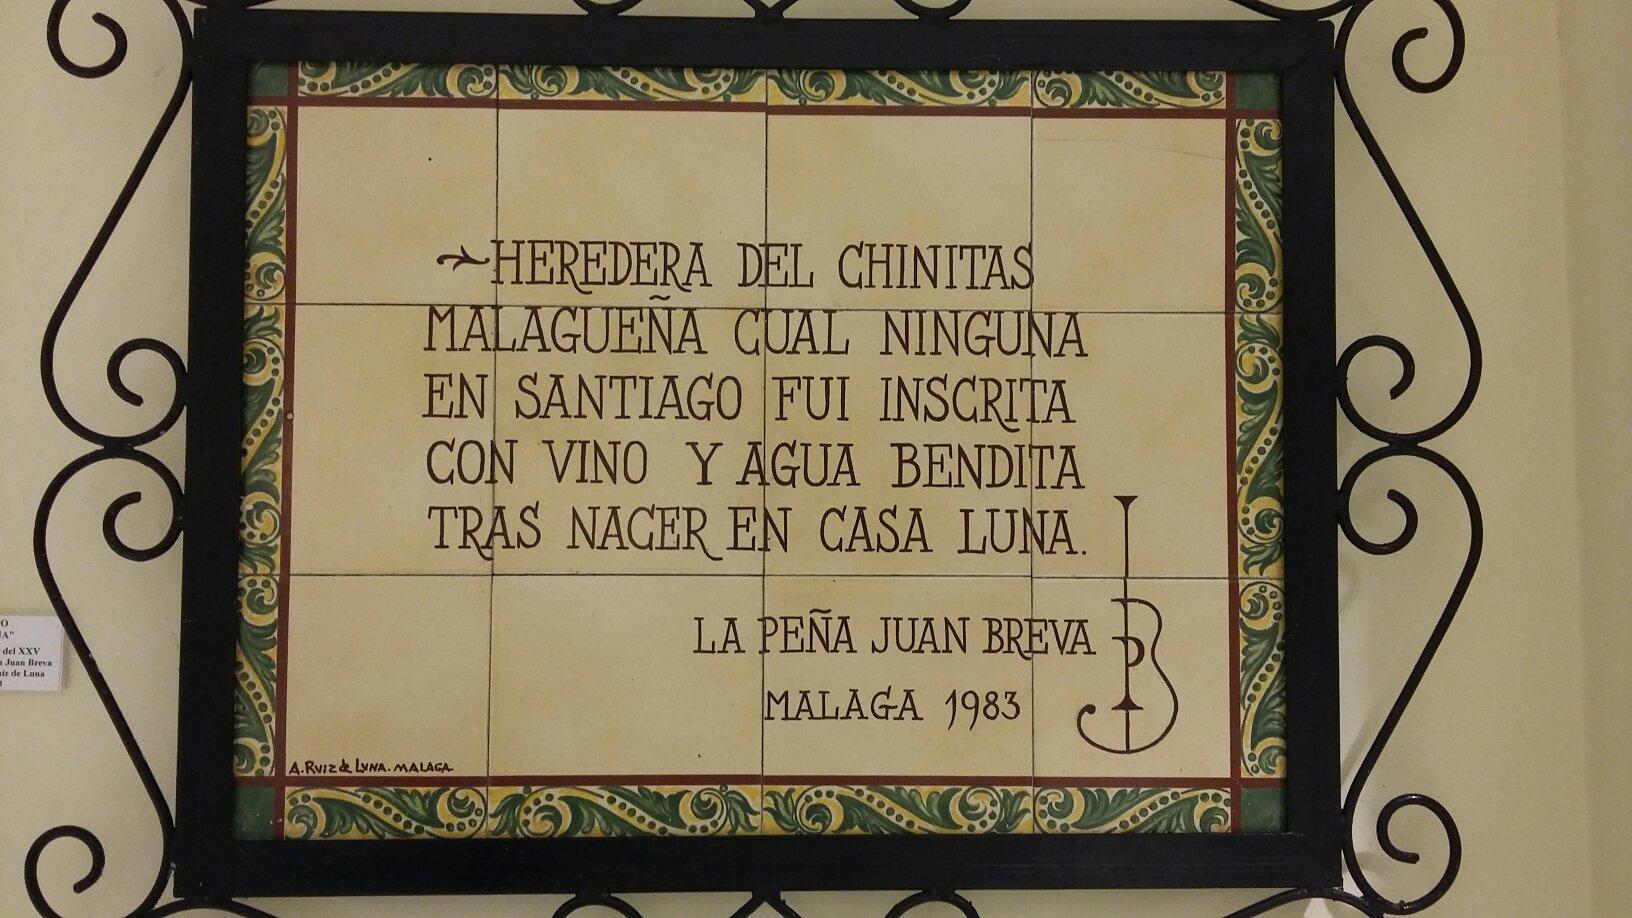 HEREDERA DEL CHINITAS
MALAGUEÑA CUAL NINGUNA
EN SANTIAGO FUI INSCRITA
CON VINO Y AGUA BENDITA
TRAS NACER EN CASA LUNA.
LA PEÑA JUAN BREVA
MALAGA 1983
A. RUIZ de LUNA. MALAGA
del XXV
Juan Breva
de Luna